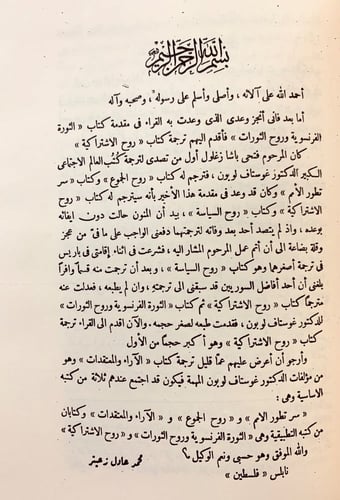 بسم الله الرحمن الرحيم
أحمد الله على آلائه ، وأصلى وأسلم على رسوله ، وصحبه وآله
أما بعد فانى أنجز وعدى الذى وعدت به القراء فى مقدمة كتاب « الثورة
الفرنسوية وروح الثورات » فأقدم اليهم ترجمة كتاب « روح الاشتراكية »
كان المرحوم فتحى باشا زغلول أول من تصدى لترجمة كتُب العالم الاجتماعى
الكبير الدكتور غوستاف لوبون ، فترجم له كتاب « روح الجموع » وكتاب « سر
تطور الأمم » وكان قد وعد فى مقدمة هذا الأخير بأنه سيترجم له كتاب « روح
الاشتراكية » وكتاب « روح السياسة » ، بيد أن المنون حالت دون ايفائه
بوعده ، واذ لم يتصد أحد بعد وفاته لترجمتهما دفعنى الواجب على ما فىّ من عجز
وقلة بضاعة الى أن أتم عمل المرحوم المشار اليه ، فشرعت فى اثناء إقامتى فى باريس
فى ترجمة أصغرهما وهو كتاب « روح السياسة » ، وبعد أن ترجمت منه قسماً وافرآ
بلغنى أن أحد أفاضل السوريين قد سبقنى الى ترجمته ، وان لم يطبعه ، فعدلت عنه
مترجماً كتاب « روح الاشتراكية » ثم كتاب « الثورة الفرنسوية وروح الثورات »
للدكتور غوستاف لوبون ، فقدمت طبعه لصغر حجمه . والآن اقدم الى القراء ترجمة
كتاب « روح الاشتراكية » وهو أكبر حجماً من الأول
وأرجو أن أعرض عليهم عمّا قليل ترجمة كتاب « الآراء والمعتقدات » وهو
من مؤلفات الدكتور غوستاف لوبون المهمة فيكون قد اجتمع عندهم ثلاثة من كتبه
الاساسية وهى :
« سر تطور الامم » و « روح الجموع » و « الآراء والمعتقدات » وكتابان
من كتبه التطبيقية وهى « الثورة الفرنسوية وروح الثورات » و « روح الاشتراكية »
والله الموفق وهو حسبى ونعم الوكيل
محمد عادل زعيتر
نابلس « فلسطين »